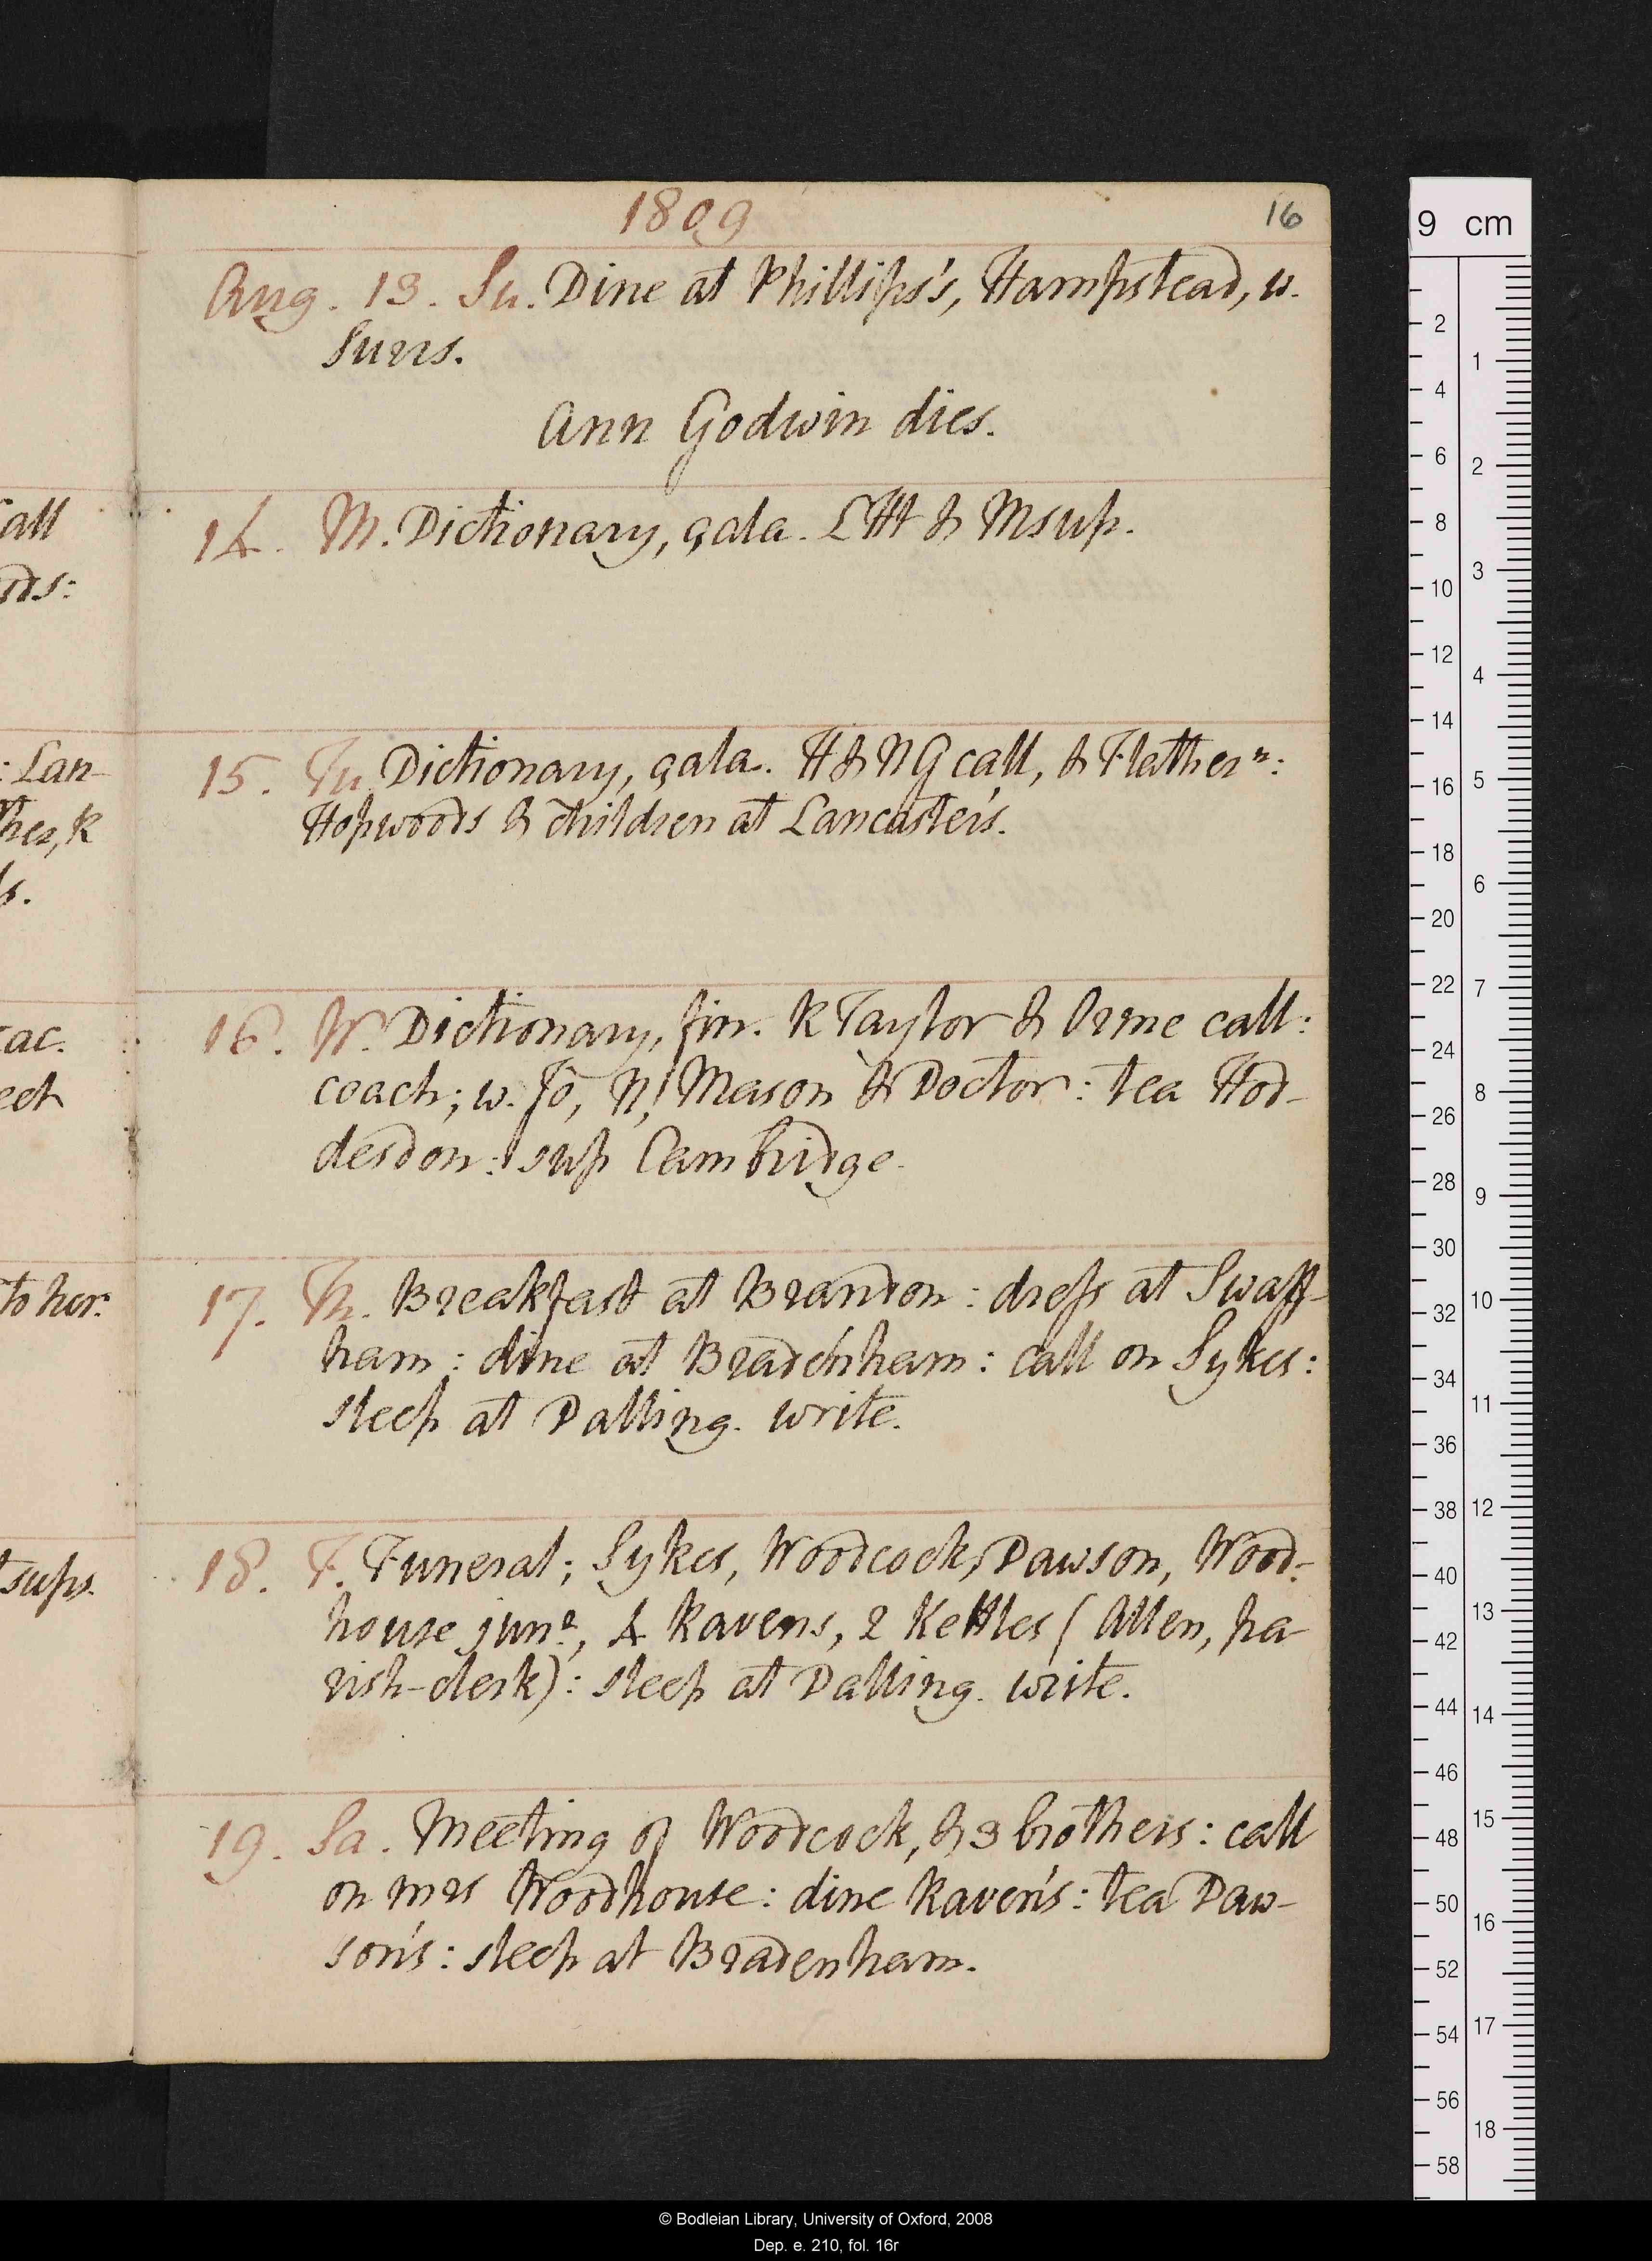 1809
16
Aug. 13. Su. Dine at Phillips's, Hampstead, w.
Surrs.
Ann Godwin dies.
14. M. Dictionary, çala. LHt & M sup.
15. Tu. Dictionary, çala. H & NG call, & Flather n:
Hopwoods & children at Lancaster's.
16. W. Dictionary, fin. R Taylor & Orme call:
coach; w. Jo, N, Mason & Doctor: tea Hod-
desdon: sup Cambridge.
17. Th. Breakfast at Brandon: dress at Swaff-
ham: dine at Bradenham: call on Sykes:
sleep at Dalling. write.
18. F. Funeral; Sykes, Woodcock, Dawson, Wood-
house junr, 4 Ravens, 2 Kettles (Allen, pa
rish-clerk): sleep at Dalling. write.
19. Sa. Meeting of Woodcock, & 3 brothers: call
on mrs Woodhouse: dine Raven's: tea Daw-
son's: sleep at Bradenham.
all
ds:
: Lan-
ther, R
s.
ac.
ect
to her:
sups.
9 cm
2
4
6
8
10
12
14
16
18
20
22
24
26
28
30
32
34
36
38
40
42
44
46
48
50
52
54
56
58
1
2
3
4
5
6
7
8
9
10
11
12
13
14
15
16
17
18
© Bodleian Library, University of Oxford, 2008
Dep. e. 210, fol. 16r